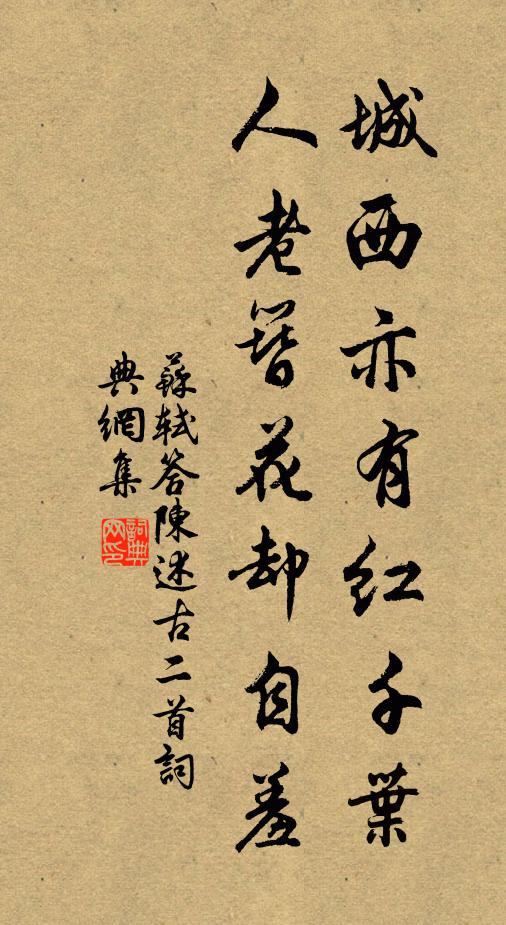 城西亦有红千葉
人老簪花却自羞
蘇軾答陳述古二首詞
典網集
詞典网印